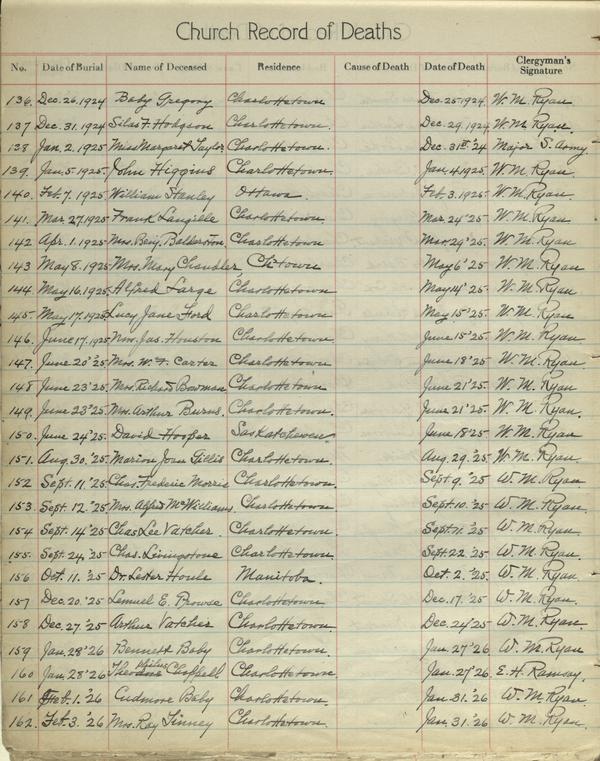 Church Record of Deaths
No. Date of Burial Name of Deceased Residence Cause of Death Date of Death Clergyman's Signature
136. Dec. 26. 1924 Baby Gregory Charlottetown Dec. 25. 1924. W. M. Ryan
137 Dec. 31. 1924 Silas F. Hodgson Charlottetown. Dec. 29. 1924. W. M. Ryan
138 Jan. 2. 1925 Miss Margaret Taylor Charlottetown. Dec. 31st '24 Major S. Army.
139. Jan. 5. 1925. John Higgins Charlottetown. Jan. 4. 1925. W. M. Ryan.
140. Feb. 7. 1925 William Stanley Ottawa. Feb. 3. 1925. W. M. Ryan.
141. Mar. 27. 1925 Frank Langille Charlottetown. Mar. 24 '25. W. M. Ryan.
142 Apr. 1. 1925 Mrs. Benj. Balderston, Charlottetown Mar. 29 '25. W. M. Ryan
143 May 8. 1925 Mrs. Mary Chandler, Ch'town May 6 '25 W. M. Ryan.
144. May 16. 1925. Alfred Large Charlottetown May 14 '25. W. M. Ryan.
145. May 17. 1925 Lucy Jane Ford Charlottetown May 15 '25. W. M. Ryan.
146. June 17. 1925 Mrs. Jas. Houston Charlottetown June 15 '25. W. M. Ryan.
147. June 20 '25 Mrs. W. F. Carter Charlottetown June 18 '25 W. M. Ryan.
148 June 23 '25. Mrs. Richard Bowman Charlottetown June 21 '25 W. M. Ryan.
149. June 23 '25. Mrs. Arthur Burns. Charlottetown. June 21 '25. W. M. Ryan.
150. June 24 '25. David Hooper Saskatchewan June 18 25. W. M. Ryan.
151. Aug. 30. '25. Marion Joan Gillis Charlottetown. Aug. 29. '25 W. M. Ryan.
152 Sept. 11 '25 Chas. Frederic Morris Charlottetown. Sept. 9. '25 W. M. Ryan
153. Sept. 12. '25 Mrs. Alfred McWilliams. Charlottetown. Sept. 10. '25 W. M. Ryan.
154 Sept. 14 '25 Chas Lee Vatcher. Charlottetown. Sept. 11. '25 W. M. Ryan.
155. Sept. 24 '25 Chas. Livingstone Charlottetown Sept. 22 '25 W. M. Ryan.
156 Oct. 11. '25 Dr. Lester Houle Manitoba. Oct. 2. '25. W. M. Ryan.
157 Dec. 20. '25 Lemuel E. Prowse Charlottetown Dec. 17. '25 W. M. Ryan.
158 Dec. 27. '25 Arthur Vatcher Charlottetown. Dec. 24 '25 W. M. Ryan.
159 Jan. 28 '26 Bennett Baby Charlottetown. Jan. 27 '26 W. M. Ryan
160 Jan. 28 '26 Theophilus Chappell Charlottetown Jan. 27 '26. E. H. Ramsay.
161 Feb. 1. '26 Cudmore Baby Charlottetown. Jan. 31. '26 W. M. Ryan.
162. Feb. 3. '26 Mrs. Ray Finney Charlottetown. Jan. 31. '26 W. M. Ryan.